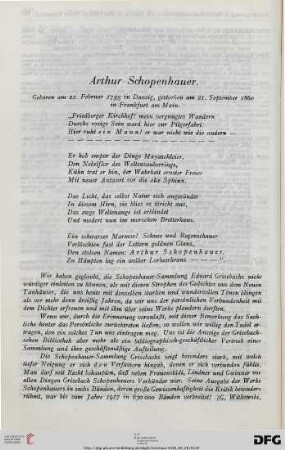 Arthur Schopenhauer.
Geboren am 22. Februar 1788 in Danzig, gestorben am 21. September 1860
in Frankfurt am Main.
„Friedberger Kirchhof! mein vergnügtes Wandern
Durchs rosige Sein ward hier zur Pilgerfahrt:
Hier ruht ein Mann! er war nicht wie die andern
Er hob empor der Dinge Mayaschleier,
Den Nebelflor des Weltenzauberrings,
Kühn trat er hin, der Wahrheit ernster Freier
Mit neuer Antwort vor die alte Sphinx.
Das Licht, das selbst Natur sich angezündet
In diesem Hirn, sie hies es streicht aus,
Das enge Weltenauge ist erblindet
Und modert nun im morschen Bretterhaus.
Ein schwarzer Marmor! Schnee und Regenschauer
Verlöschten fast der Lettern goldnen Glanz,
Den stolzen Namen: Arthur Schopenhauer,
Zu Häupten lag ein welker Lorbeerkranz — — —"
Wir haben geglaubt, die Schopenhauer-Sammlung Eduard Grisebachs nicht
würdiger einleiten zu können, als mit diesen Strophen des Gedichtes aus dem Neuen
Tanhäuser, das uns heute noch mit demselben starken und wundervollen Tönen klingen
als vor mehr denn dreißig Jahren, da wir uns der persönlichen Verbundenheit mit
dem Dichter erfreuen und mit ihm über seine Werke plaudern durften.
Wenn wir, durch die Erinnerung veranlaßt, mit dieser Bemerkung das Sach-
liche hinter das Persönliche zurücktreten ließen, so wolle man uns willig den Tadel er-
tragen, den ein solches Tun uns eintragen mag. Uns ist die Anzeige der Grisebach-
schen Bibliothek aber mehr als ein bibliographisch-geschäftsmäßiger Vertrieb einer
Sammlung und ihre geschäftsmäßige Aufteilung.
Die Schopenhauer-Sammlung Grisebachs zeigt besonders stark, mit welch
tiefer Neigung er sich den Verfassern hingab, denen er sich verbunden fühlte.
Man darf mit Recht behaupten, daß neben Frauenstädt, Lindner und Gwinner vor
allen Dingen Grisebach Schopenhauers Verkünder war. Seine Ausgabe der Werke
Schopenhauers in sechs Bänden, deren große Gewissenhaftigkeit die Kritik besonders
rühmt, war bis zum Jahre 1927 in 670000 Bänden verbreitet! (G. Witkowski.
DFG